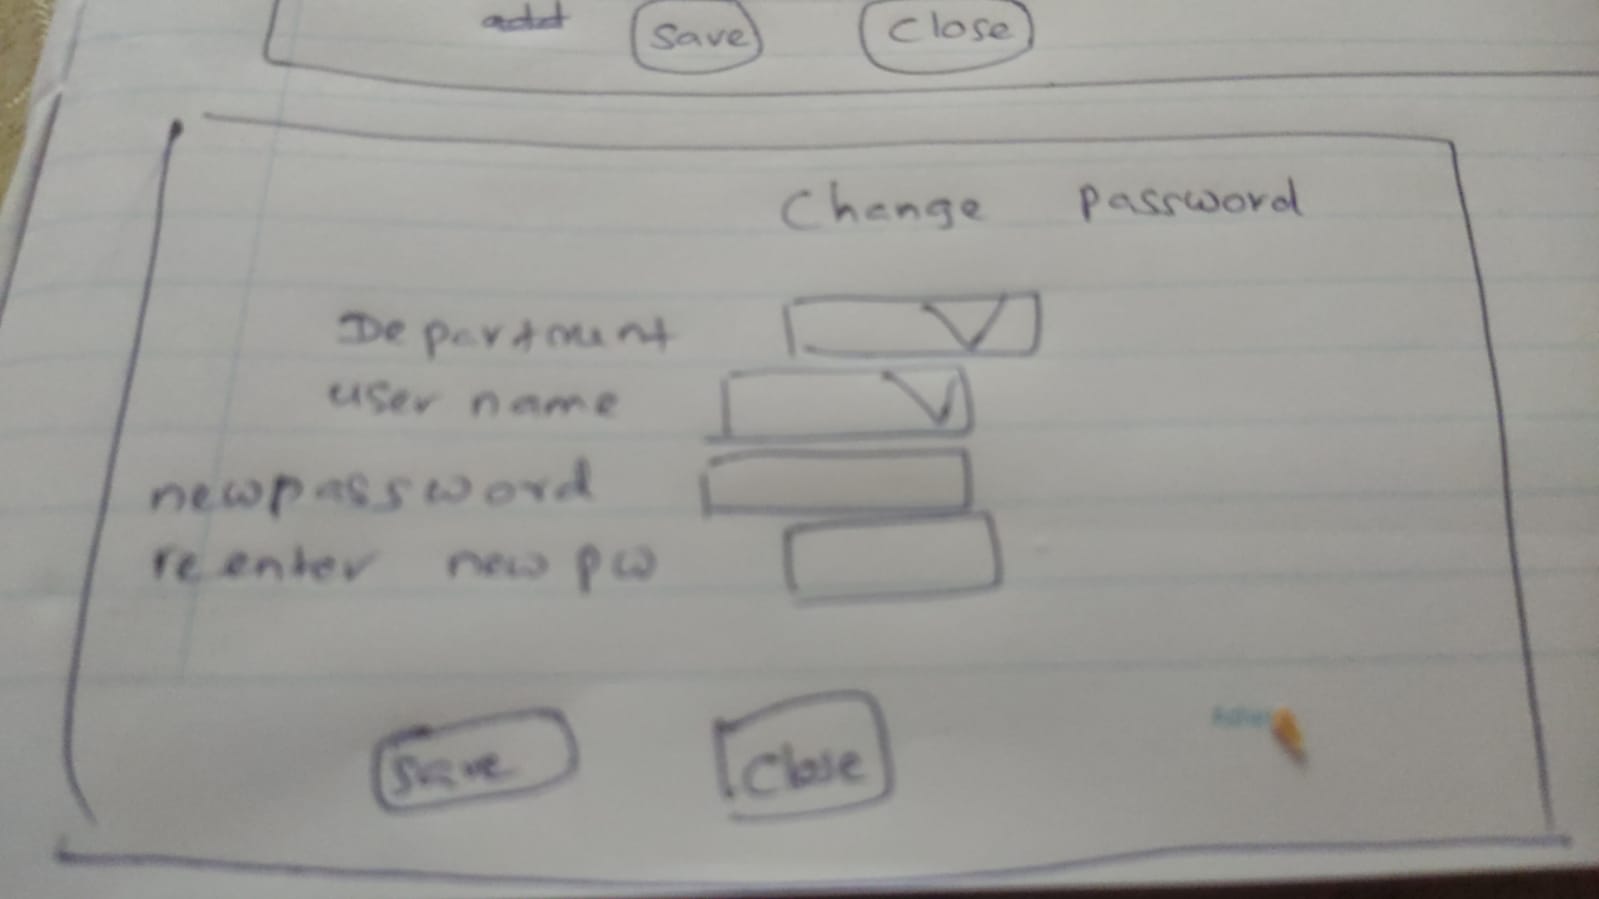 add save close
Change password
Department
user name
newpassword
re enter new pw
save close